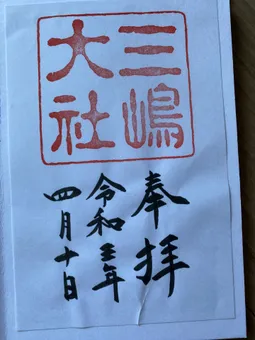 三嶋
大社
奉拝
令和三年
四月十日